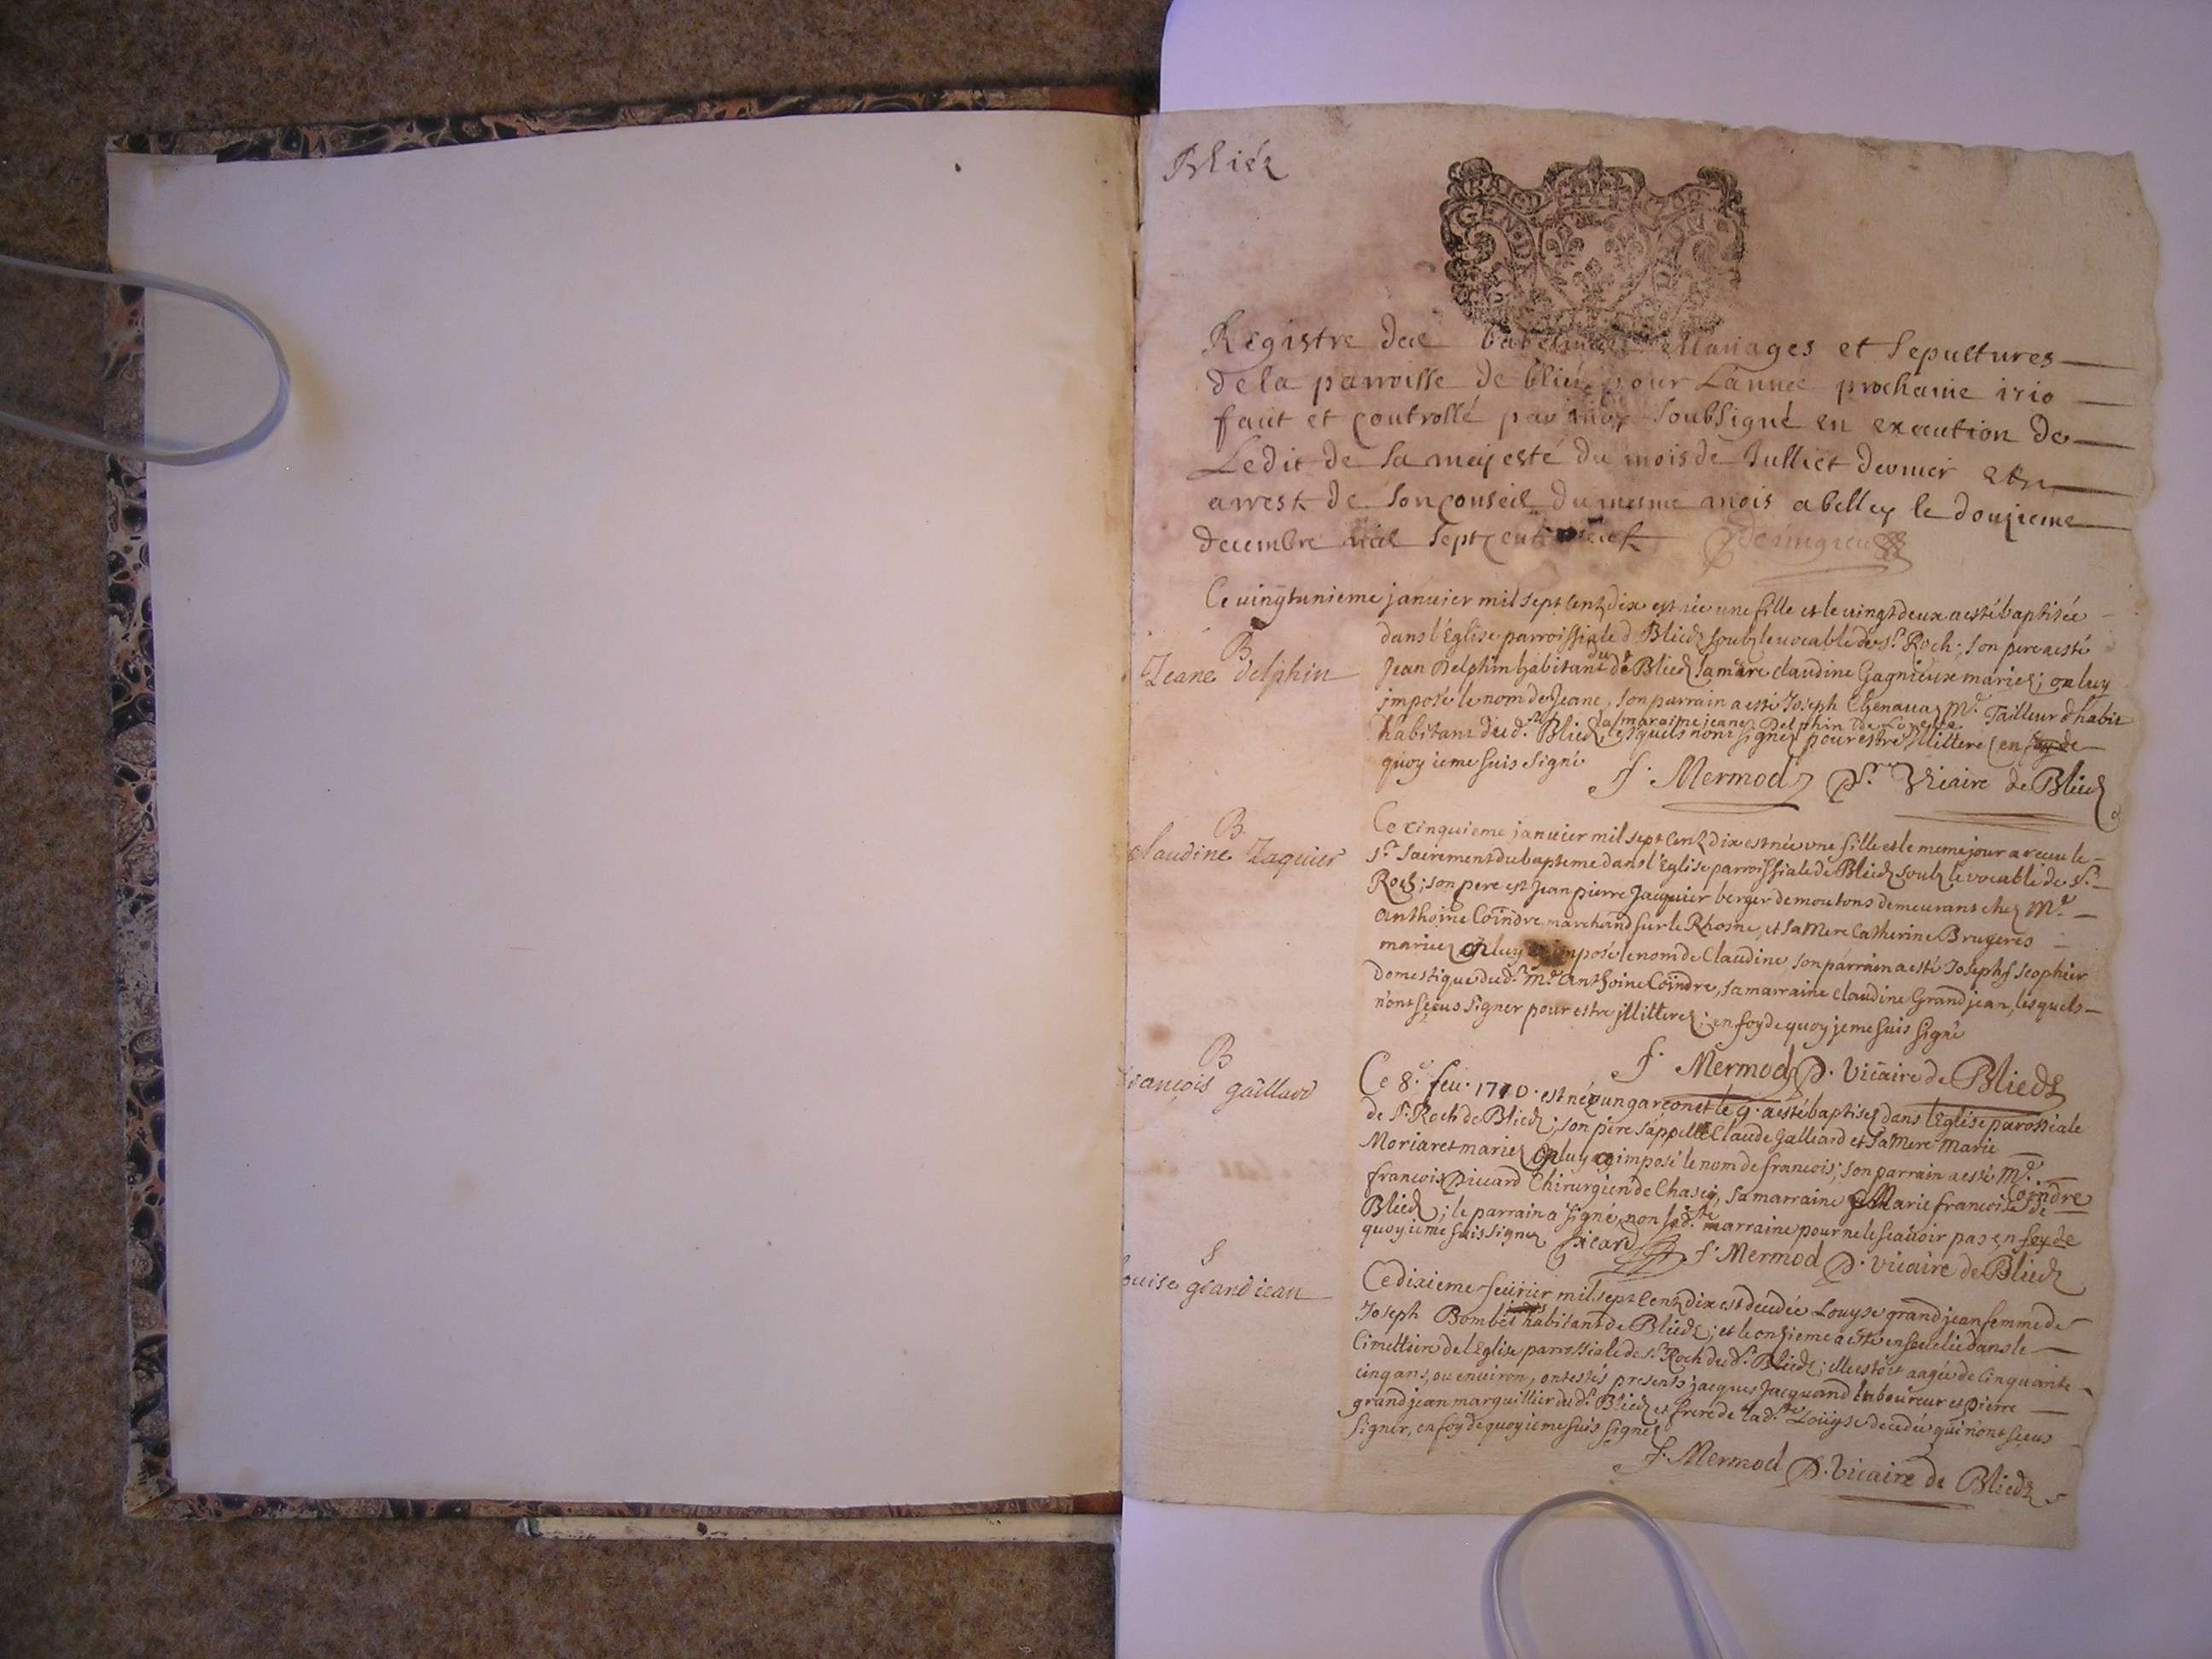 Bliéz
Registre des babtesmes Mariages et Sepultures
dela parroisse de bliéz pour Lannée prochaine 1710
fait et Controllé par moy Soubsigné en execution de
Ledit de Sa majesté du mois de Julliet dernier et
arrest de Son Conseil du mesme mois a belley le douzieme
decembre mil Sept cent neuf
Ce vingtunieme januier mil sept Centz dix est née une fille et le uingt deux a esté baptisée
B
Jeane delphin
dans l'Eglise parroissiale d Bliedz soubz le uocable de St. Roch; son pere a esté
Jean Delphin habitant dud Bliedz sa mere claudine Gagnieux mariez; on luy
imposé le nom de Jeane, son parrain a esté Joseph Chenauaz Mr. Tailleur d'habit
la maraine jeane Delphin de
habitant dud. Bliedz, lesquels n'ont signez pour estre illitere (en foy de
quoy ie me suis signé
f. Mermod Ptre Vicaire de Bliedz
B
claudine Jaquier
Ce cinquieme januier mil sept Centz dix est née une fille et le meme jour a receu le
St. Sacrement du bapteme dans l'Eglise parroissiale de Bliedz soubz le vocable de St.
Roch; son pere est Jean pierre Jacquier berger de moutons demeurant chez Mr.
Anthoine Coindre marchand sur le Rhosne, et sa Mere Catherine Brugeres
mariez on luy a imposé le nom de Claudine, son parrain a esté Joseph Scophier
Domestique dud. Mr. Anthoine Coindre, sa marraine claudine Grand jean, lesquels
n'ont sceus signer pour estre illitterez; en foy de quoy je me suis signé
f. Mermod P. Vicaire de Bliedz
B
François gaillard
Ce 8. feu. 1710. est né un garçon et le 9. a esté baptisez dans l'Eglise parossiale
de St. Roch de Bliedz; son pere s'appelle Claude Galliard et Sa Mere Marie
Moriaret mariez on luy a imposé le nom de francois; son parrain a esté Mr.
francois Piccard Chirurgien de Chasey, sa marraine Marie francoise Coindre de
Bliedz; le parrain a signé, non lad. marraine pour ne le scauoir pas en foy de
quoy ie me suis signez Picard f. Mermod P. Vicaire de Bliedz
S
Louise grand iean
Ce dixieme feurier mil sept Centz dix est decedée Louyse grand jean femme de
Joseph Bombes habitant de Bliedz; et le onzieme a esté enseuelie dans le
Cimettiere de l'Eglise parrossiale de St. Roch dud. Bliedz; elle estoit aagée de Cinquante
cinq ans, ou enuiron, ont estés presents jacques Jacquand laboureur et pierre
grand jean marguillier dud. Bliedz et frere de lad. Louyse decedée qui n'ont sceus
signer, en foy de quoy ie me suis signez
f. Mermod P. Vicaire de Bliedz